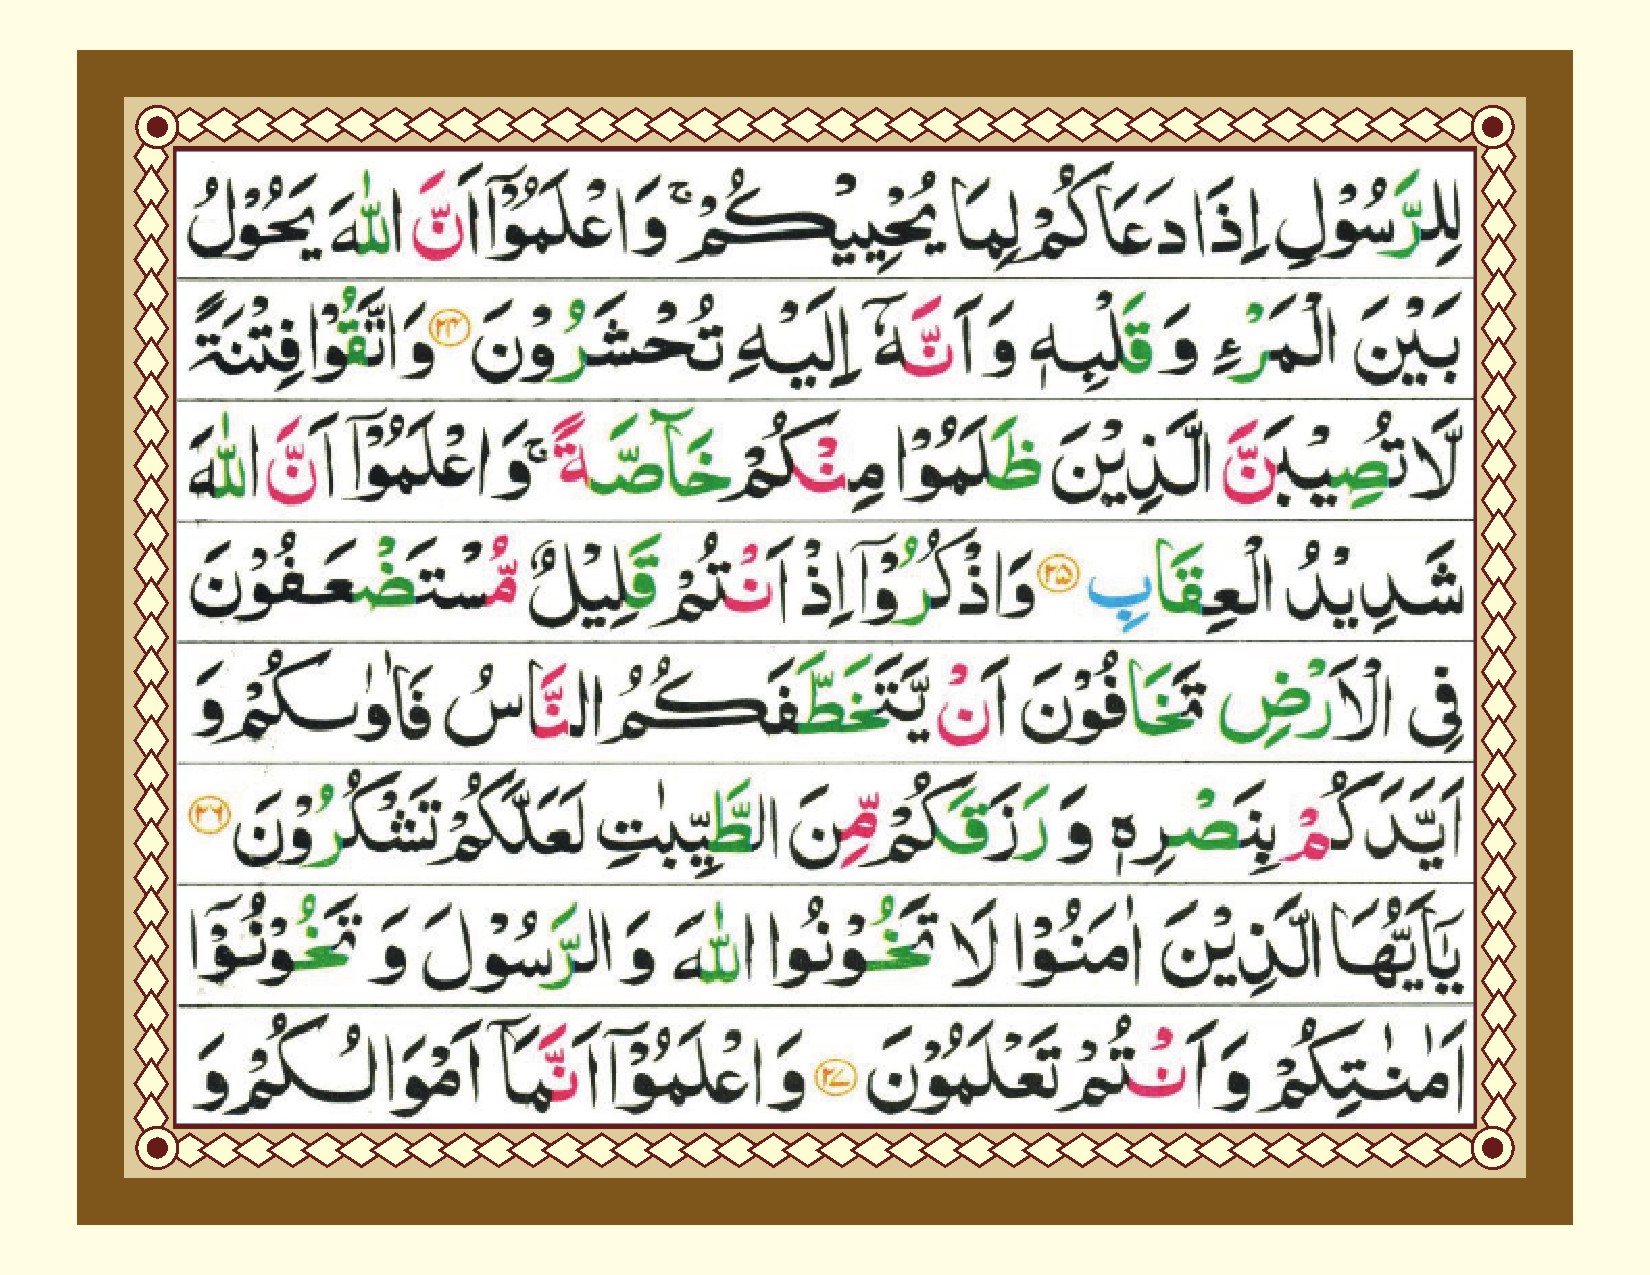 لِلرَّسُوْلِ اِذَا دَعَاكُمْ لِمَا يُحْيِيْكُمْ ۚ وَاعْلَمُوْۤا اَنَّ اللّٰهَ يَحُوْلُ
بَيْنَ الْمَرْءِ وَ قَلْبِهٖ وَ اَنَّهٗۤ اِلَيْهِ تُحْشَرُوْنَ ﴿۲۴﴾ وَاتَّقُوْا فِتْنَةً
لَّا تُصِيْبَنَّ الَّذِيْنَ ظَلَمُوْا مِنْكُمْ خَآصَّةً ۚ وَاعْلَمُوْۤا اَنَّ اللّٰهَ
شَدِيْدُ الْعِقَابِ ﴿۲۵﴾ وَاذْكُرُوْۤا اِذْ اَنْتُمْ قَلِيْلٌ مُّسْتَضْعَفُوْنَ
فِى الْاَرْضِ تَخَافُوْنَ اَنْ يَّتَخَطَّفَكُمُ النَّاسُ فَاٰوٰىكُمْ وَ
اَيَّدَكُمْ بِنَصْرِهٖ وَ رَزَقَكُمْ مِّنَ الطَّيِّبٰتِ لَعَلَّكُمْ تَشْكُرُوْنَ ﴿۲۶﴾
يٰۤاَيُّهَا الَّذِيْنَ اٰمَنُوْا لَا تَخُوْنُوا اللّٰهَ وَ الرَّسُوْلَ وَ تَخُوْنُوْۤا
اَمٰنٰتِكُمْ وَ اَنْتُمْ تَعْلَمُوْنَ ﴿۲۷﴾ وَاعْلَمُوْۤا اَنَّمَاۤ اَمْوَالُكُمْ وَ